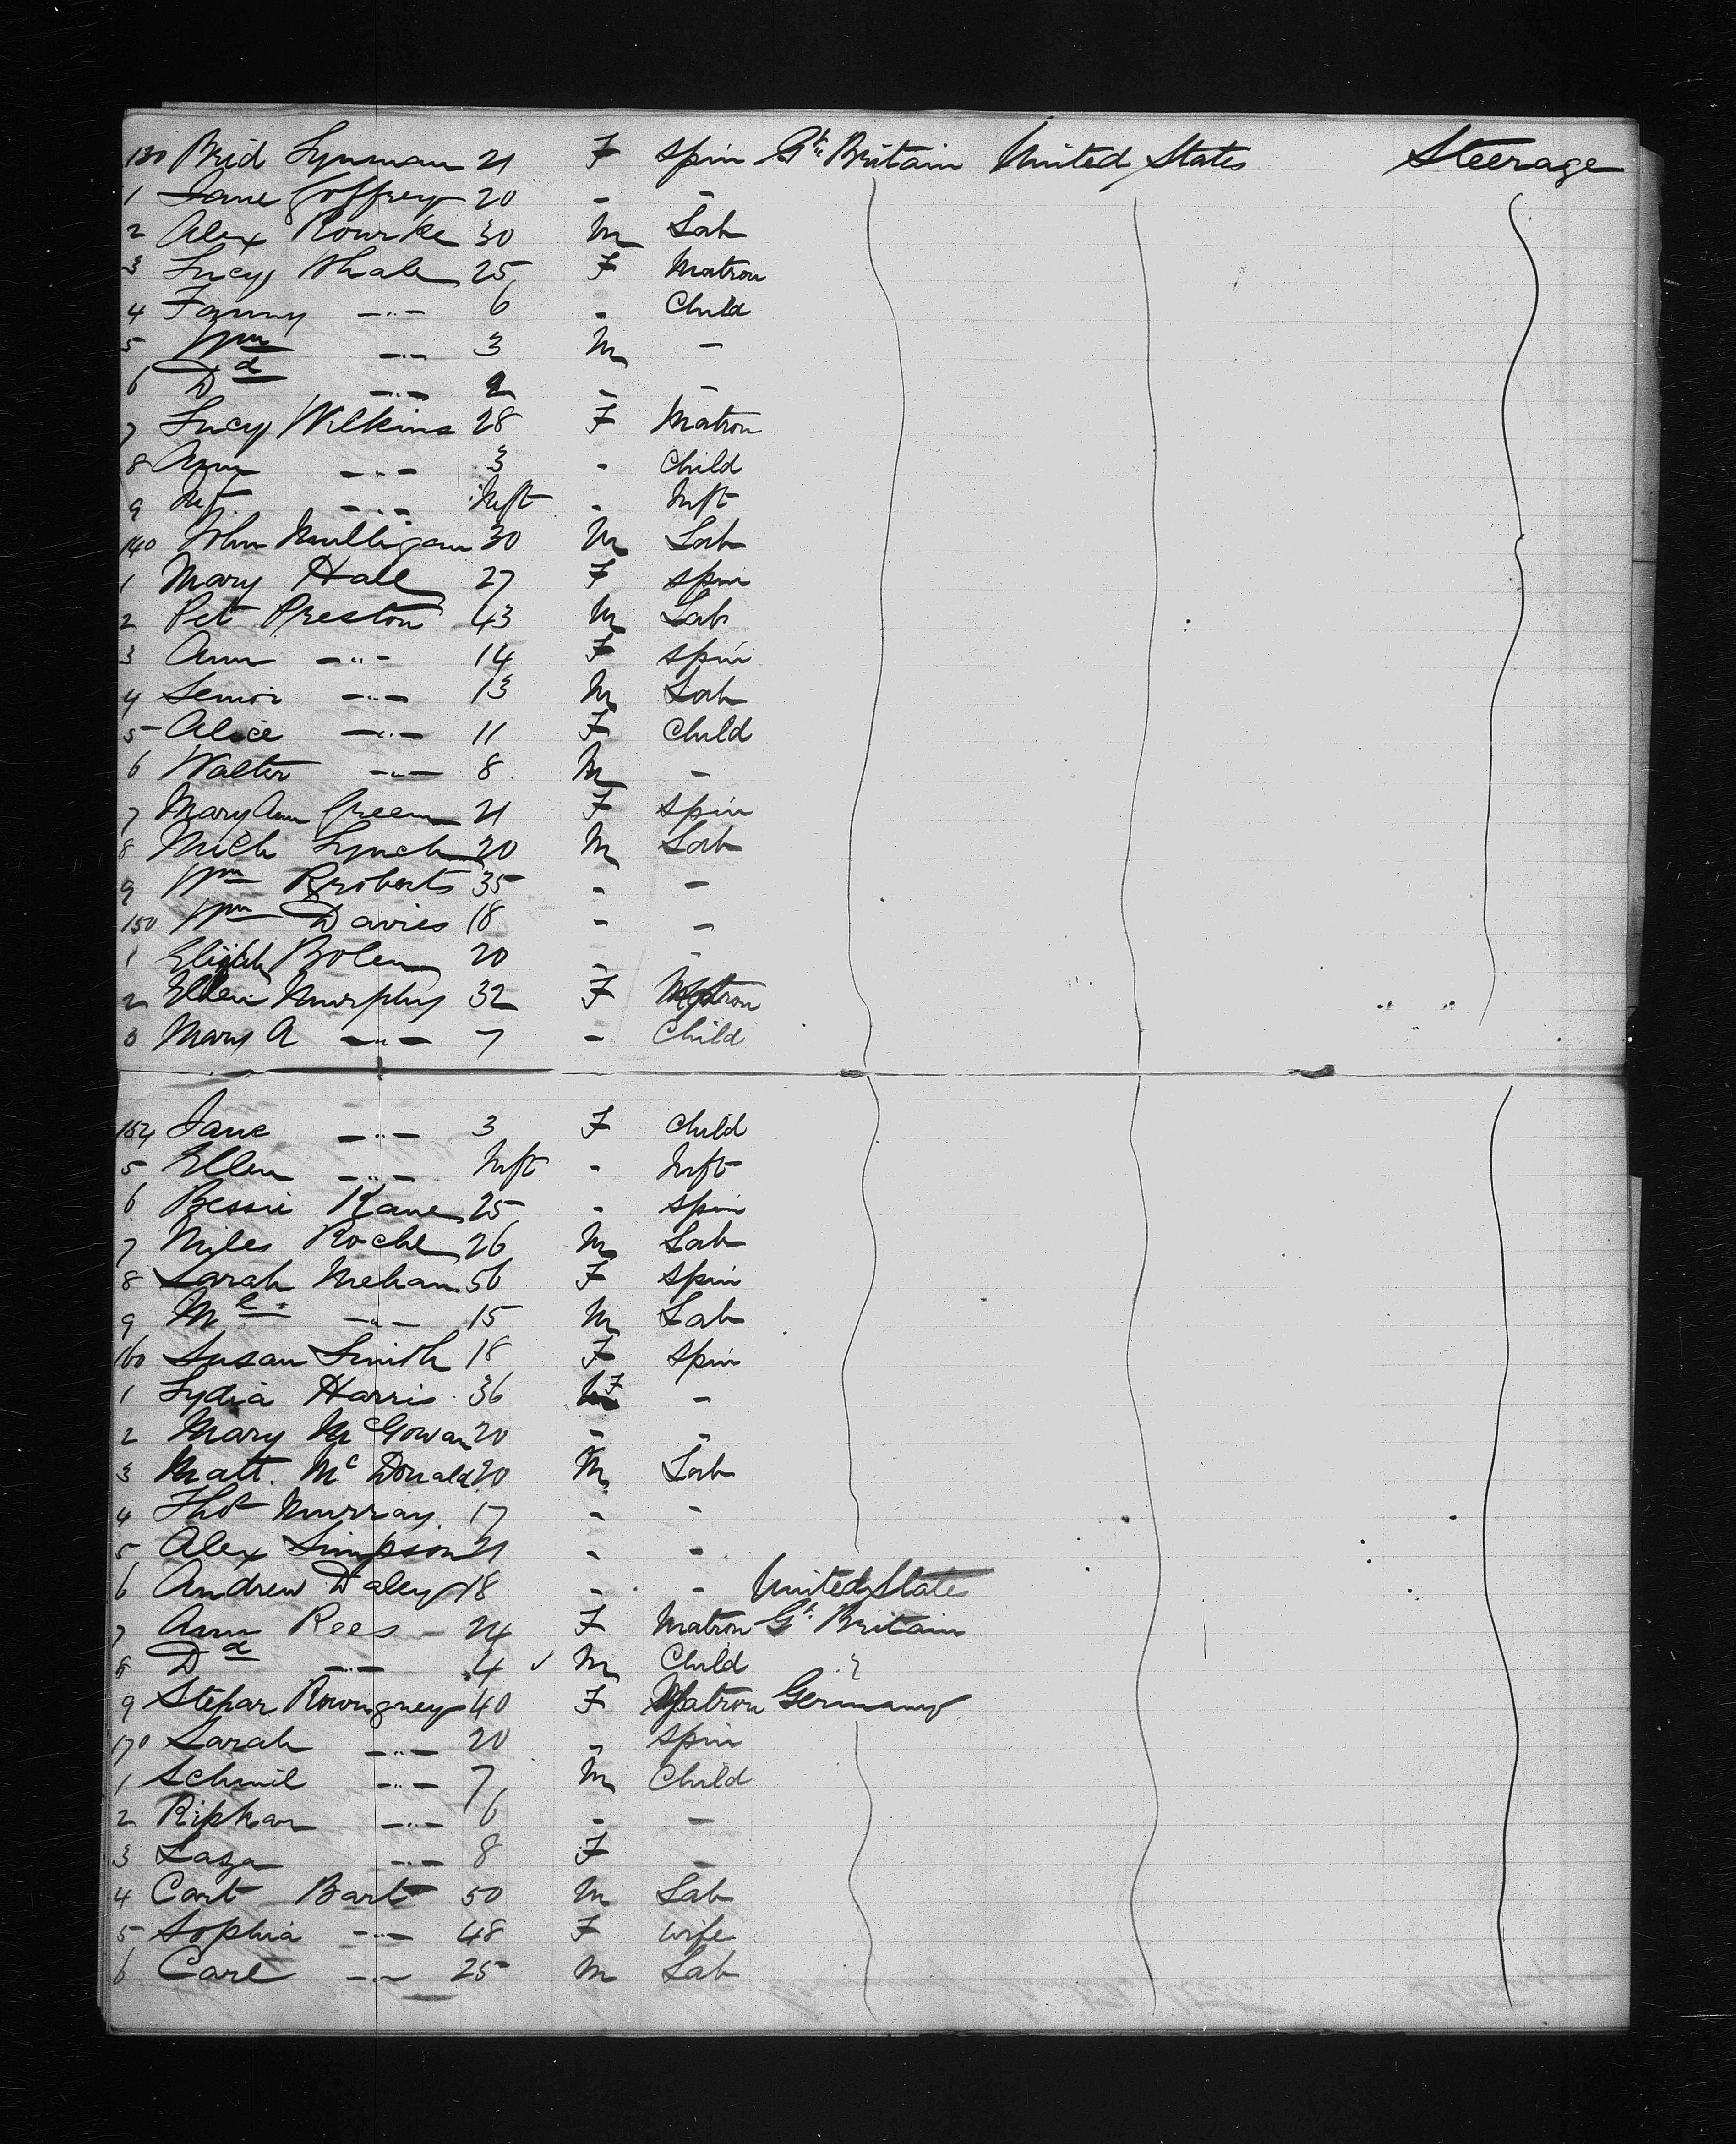 130 Brid Lynman 21 F spin Gt. Britain United States Steerage
1 Jane Goffrey 20 - -
2 Alex Rourke 30 M Lab
3 Lucy Whale 25 F Matron
4 Fanny -"- 6 - Child
5 Wm -"- 3 M -
6 Dd -"- 2 - -
7 Lucy Wilkins 28 F Matron
8 Ann -"- 3 - Child
9 Inft -"- Inft - Inft
140 John Mulligan 30 M Lab
1 Mary Hall 27 F spin
2 Pet Preston 43 M Lab
3 Ann -"- 14 F spin
4 Senior -"- 13 M Lab
5 Alice -"- 11 F Child
6 Walter -"- 8 M -
7 Mary Ann Green 21 F spin
8 Mich Lynch 20 M Lab
9 Wm Roberts 35 - -
150 Wm Davies 18 - -
1 Elijah Bolen 20 - -
2 Ellen Murphy 32 F Matron
3 Mary A -"- 7 - Child
154 Jane -"- 3 F Child
5 Ellen -"- Inft - Inft
6 Bessie Kane 25 - spin
7 Miles Roche 26 M Lab
8 Sarah Mehan 56 F spin
9 Ml. -"- 15 M Lab
160 Susan Smith 18 F spin
1 Lydia Harris 36 F -
2 Mary McGowan 20 - -
3 Matt. McDonald 20 M Lab
4 Thos Murray 17 - -
5 Alex Simpson 21 - -
6 Andrew Daley 18 - - United States
7 Ann Rees 24 F Matron Gt. Britain
8 Dd -"- 4 M Child
9 Stepar 40 F Matron Germany
170 Sarah -"- 20 - spin
1 Schmil -"- 7 M Child
2 Ripkan -"- 6 - -
3 Laza -"- 8 F -
4 Carl Bart 50 M Lab
5 Sophia -"- 48 F wife
6 Carl -"- 25 M Lab